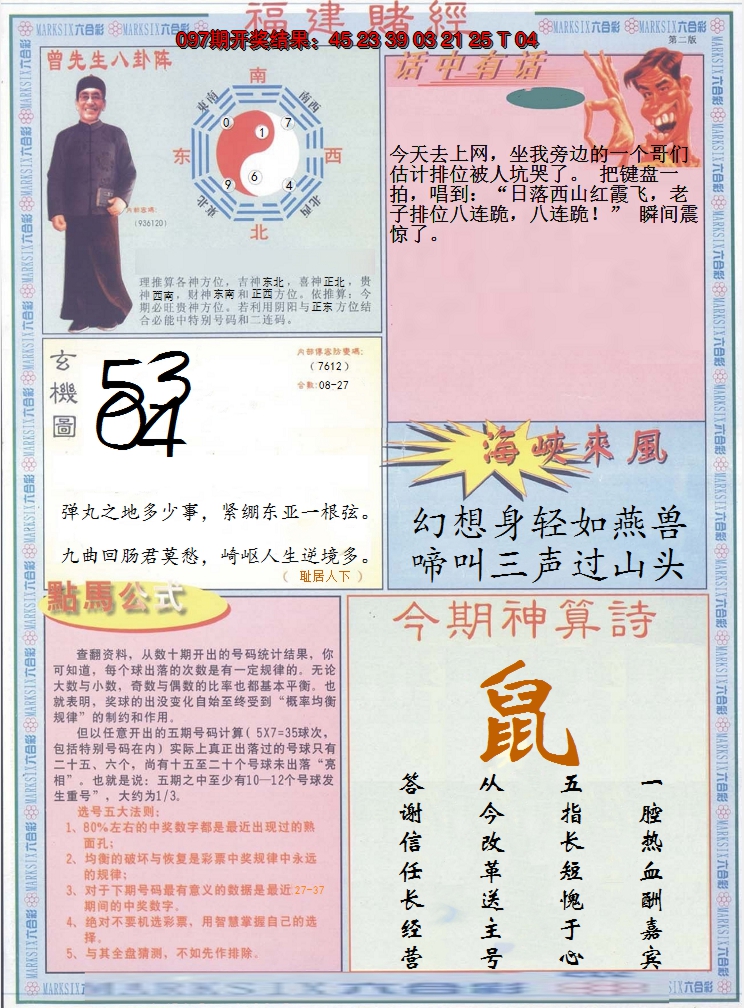 福建賭經
097期开奖结果：45 23 39 03 21 25 T 04
MARKSIX六合彩
第二版
曾先生八卦阵
南
東南
南西
0
1
7
东
西
9
6
4
東北
北西
北
内部密碼：
（936120）
理推算各神方位，吉神东北，喜神正北，贵
神西南，财神东南和正西方位。依推算：今
期必旺贵神方位。若利用阴阳与正东方位结
合必能中特别号码和二连码。
话中有话
今天去上网，坐我旁边的一个哥们
估计排位被人坑哭了。 把键盘一
拍，唱到：“日落西山红霞飞，老
子排位八连跪，八连跪！” 瞬间震
惊了。
玄機圖
53
04
（7612）
合数:08-27
弹丸之地多少事，紧绷东亚一根弦。
九曲回肠君莫愁，崎岖人生逆境多。
（ 耻居人下 ）
海峽來風
幻想身轻如燕兽
啼叫三声过山头
點馬公式
查翻资料，从数十期开出的号码统计结果，你
可知道，每个球出落的次数是有一定规律的。无论
大数与小数，奇数与偶数的比率也都基本平衡。也
就表明，奖球的出没变化自始至终受到“概率均衡
规律”的制约和作用。
但以任意开出的五期号码计算( 5X7=35球次，
包括特别号码在内) 实际上真正出落过的号球只有
二十五、六个，尚有十五至二十个号球未出落“亮
相”。也就是说：五期之中至少有10—12个号球发
生重号”，大约为1/3。
选号五大法则：
1、80%左右的中奖数字都是最近出现过的熟
面孔；
2、均衡的破坏与恢复是彩票中奖规律中永远
的规律；
3、对于下期号码最有意义的数据是最近27-37
期间的中奖数字。
4、绝对不要机选彩票，用智慧掌握自己的选
择。
5、与其全盘猜测，不如先作排除。
今期神算詩
鼠
一腔热血酬嘉宾
五指长短愧于心
从今改革送主号
答谢信任长经营